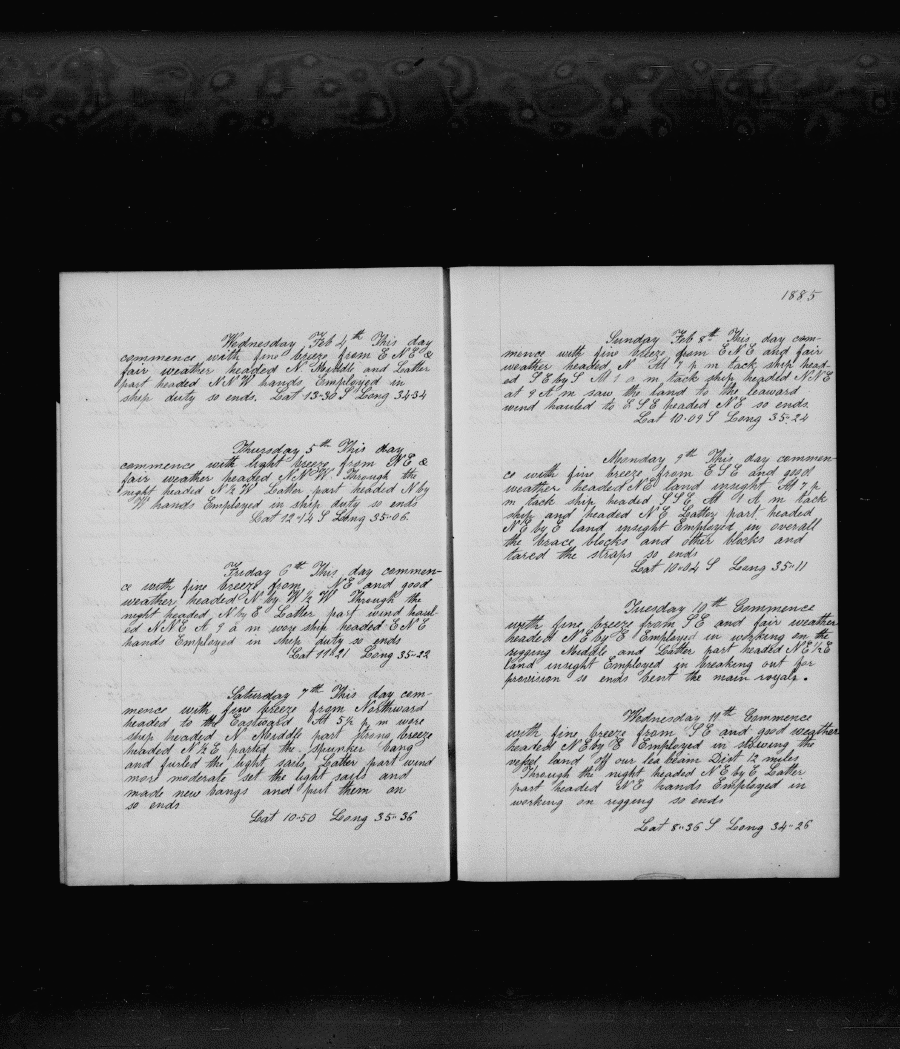 Wednesday Feb 4th This day
commence with fine breeze from E N E &
fair weather headed N Middle and Latter
part headed N N W hands Employed in
ship duty so ends. Lat 13-30 S Long 34-34
Thursday 5th This day
commence with light breeze from N E &
fair weather headed N N W. Through the
night headed N ½ W Latter part headed N by
W hands Employed in ship duty so ends
Lat 12-14 S Long 35-06.
Friday 6th This day commen-
ce with fine breeze from N E and good
weather headed N by W ½ W Through the
night headed N by E Latter part wind haul-
ed N N E At 9 a m wore ship headed E N E
hands Employed in ship duty so ends
Lat 11-21 Long 35-22
Saturday 7th This day com-
mence with fine breeze from Northward
headed to the Eastward At 5½ p m wore
ship headed N Middle part strong breeze
headed N ½ E parted the spunker bang
and furled the light sails Latter part wind
more moderate set the light sails and
made new bangs and put them on
so ends
Lat 10-50 Long 35-36
1885
Sunday Feb 8th This day com-
mence with fine breeze from E N E and fair
weather headed N At 7 p m tack ship head-
ed S E by S At 1 a m tack ship headed N N E
at 9 A m saw the land to the leaward
wind hauled to E S E headed N E so ends.
Lat 10-09 S Long 35-24
Monday 9th This day commen-
ce with fine breeze from E S E and good
weather headed N E land insight At 7 p
m tack ship headed S S E At 1 A m tack
ship and headed N E Latter part headed
N E by E land insight Employed in overall
the brace blocks and other blocks and
tared the straps so ends
Lat 10-04 S Long 35-11
Tuesday 10th Commence
with fine breeze from S E and fair weather
headed N E by E Employed in working on the
rigging Middle and Latter part headed N E ½ E
land insight Employed in breaking out for
provision so ends bent the main royal.
Wednesday 11th Commence
with fine breeze from S E and good weather
headed N E by E Employed in stowing the
vessel land off our lea beam Dist 12 miles
Through the night headed N E by E Latter
part headed N E hands Employed in
working on rigging so ends
Lat 8-36 S Long 34-26